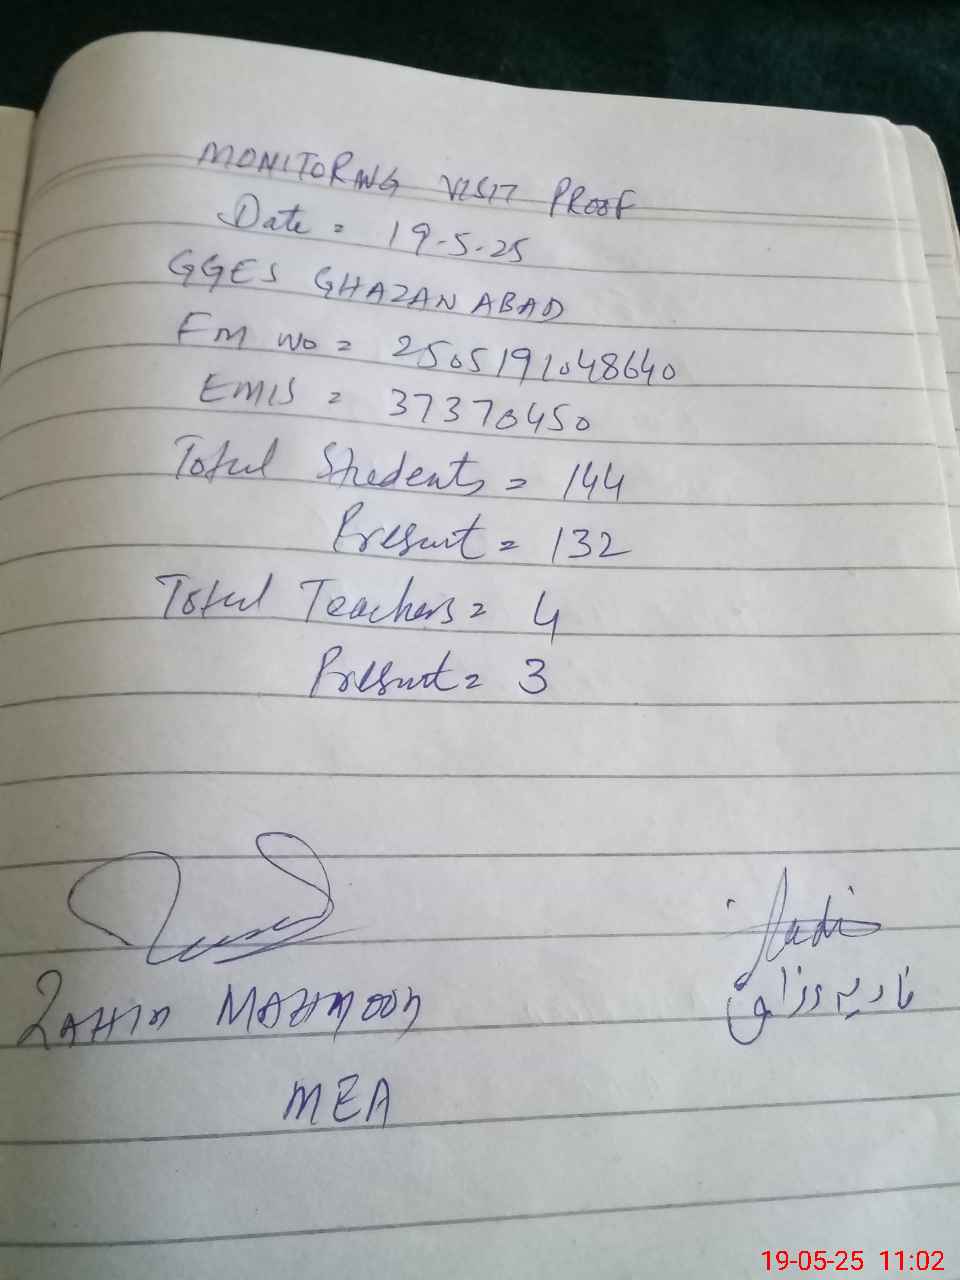 MONITORING VISIT PROOF
Date = 19-5-25
GGES GHAZANABAD
FM No = 2505191048640
EMIS = 37370450
Total Students = 144
Present = 132
Total Teachers = 4
Present = 3
Nadi
ZAHID MAHMOOD
نادیہ رزاق
MEA
19-05-25 11:02